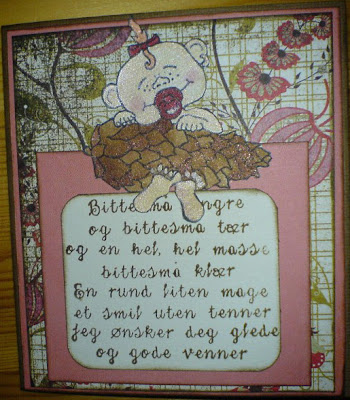 Bittesmå ngre
og bittesmå tær
og en hel, hel masse
bittesmå klær
En rund liten mage
et smil uten tenner
Jeg ønsker deg glede
og gode venner